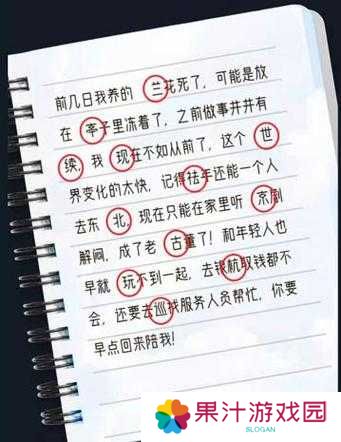 前几日我养的 兰花死了,可能是放
在 亭子里冻着了,之前做事井井有
续,我 现在不如从前了,这个 世
界变化的太快,记得祛年还能一个人
去东 北,现在只能在家里听 京剧
解闷,成了老 古董了!和年轻人也
早就 玩不到一起,去银杭取钱都不
会,还要去巡找服务人员帮忙,你要
早点回来陪我!
果汁游戏园
SLOGAN